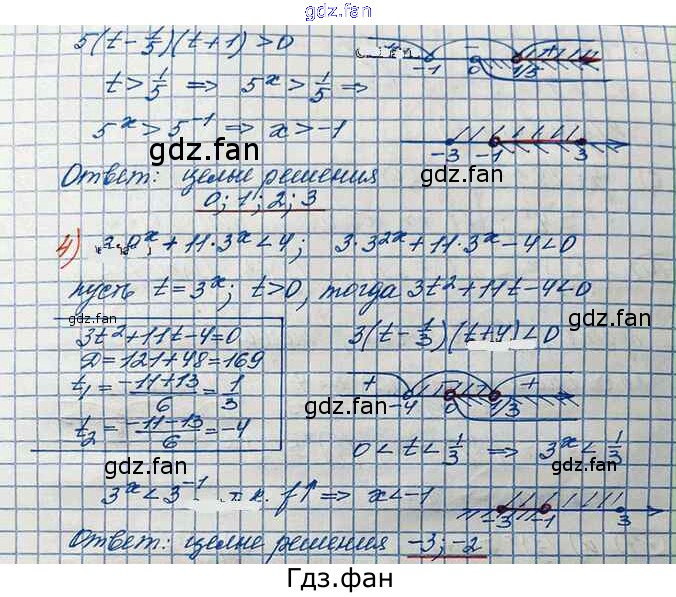 gdz.fan
5(t-1/5)(t+1)>0
-1 0 1/5
t>1/5 ⇒ 5ˣ>1/5 ⇒
5ˣ>5⁻¹ ⇒ x>-1
-3 -1 3
gdz.fan
gdz.fan
Ответ: целые решения
0; 1; 2; 3
gdz.fan
4) 3·9ˣ+11·3ˣ<4; 3·3²ˣ+11·3ˣ-4<0
gdz.fan
пусть t=3ˣ; t>0, тогда 3t²+11t-4<0
gdz.fan
gdz.fan
3t²+11t-4=0
D=121+48=169
t₁=(-11+13)/6=1/3
t₂=(-11-13)/6=-4
gdz.fan
3(t-1/3)(t+4)<0
+ - +
-4 0 1/3
gdz.fan
0<t<1/3 ⇒ 3ˣ<1/3
gdz.fan
gdz.fan
3ˣ<3⁻¹ т.к. f↑ ⇒ x<-1
-3 -1 3
gdz.fan
gdz.fan
Ответ: целые решения -3; -2
Гдз.фан